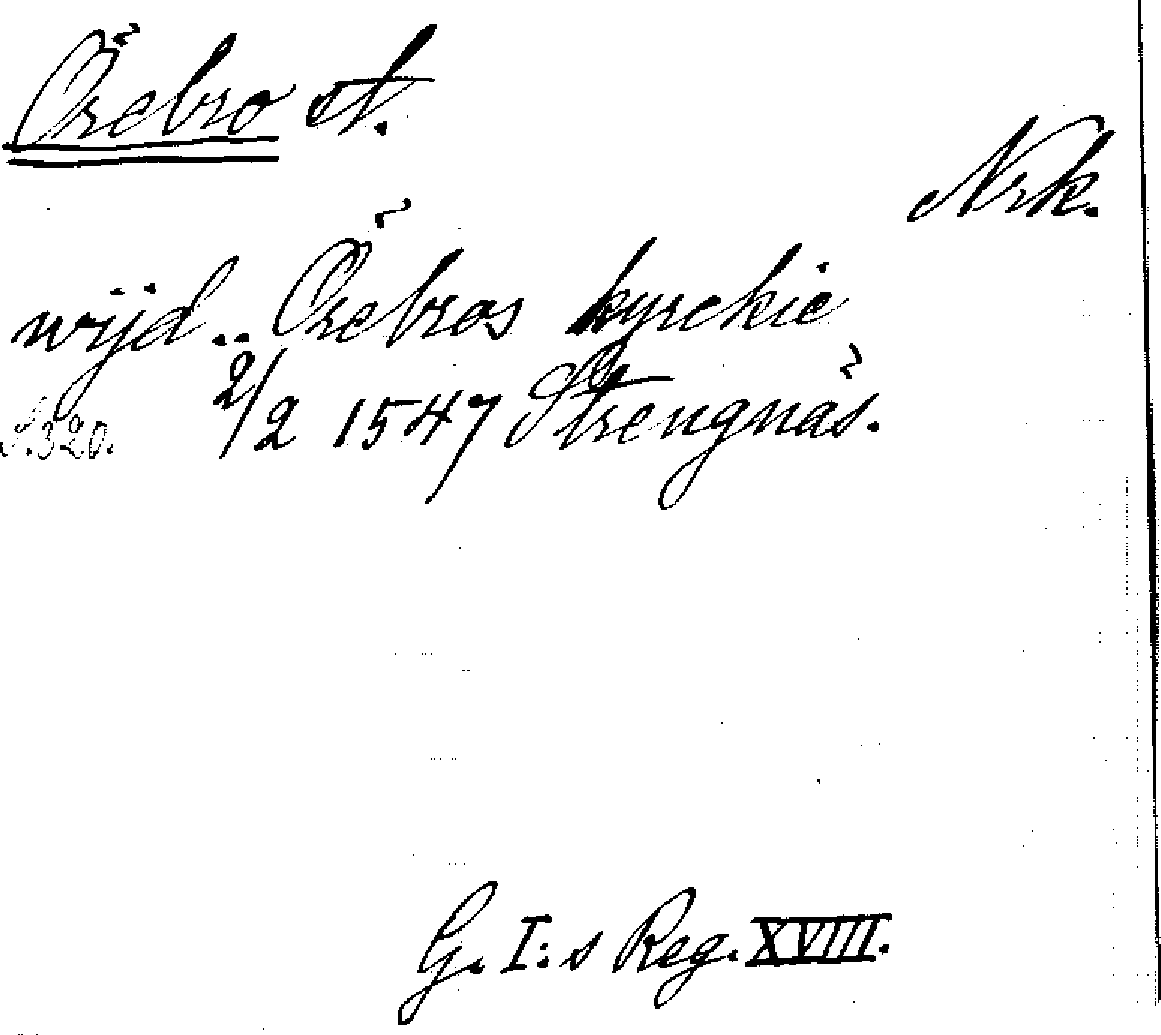 Örebro st.
Nrk.
wijd.. Örebros kyrckie
S. 320. 2/2 1547 Strengnäs.
G. I:s Reg. XVIII.